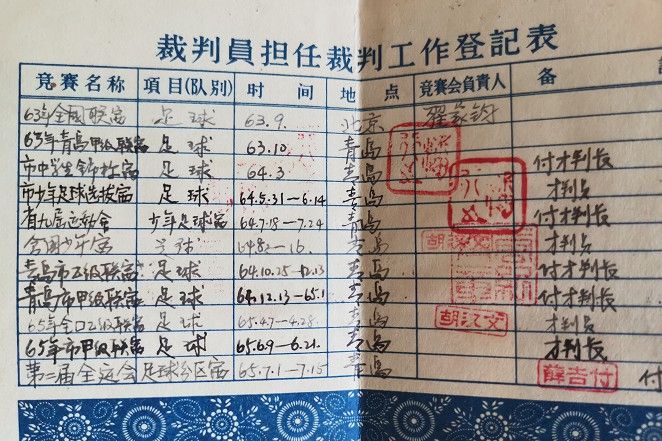 裁判員担任裁判工作登記表
竞賽名称 項目(队别) 时 间 地 点 竞賽会負責人 备
63年全國联赛 足 球 63.9. 北京 翟家钧
63年青島甲级联赛 足 球 63.10 青島 付才判长
市中学生锦标赛 足 球 64.3 青島 才判长
市少年足球选拔赛 足 球 64.5.31—6.14 青島 付才判长
省九届运动会 少年足球赛 64.7.18—7.24 青島 才判长
全國少年赛 足球 64.8.2—16. 青島 才判长
青島市乙级联赛 足 球 64.10.25—12.13 青島 付才判长
青島市甲级联赛 足 球 64.12.13—65.1 青島 付才判长
65年全囗乙级联赛 足 球 65.4.7—4.28. 青島 才判长
65年市甲级联赛 足 球 65.6.9—6.21. 青島 才判长
第二届全运会足球分区赛 65.7.1—7.15 青島 付
胡汉文
薛吉付